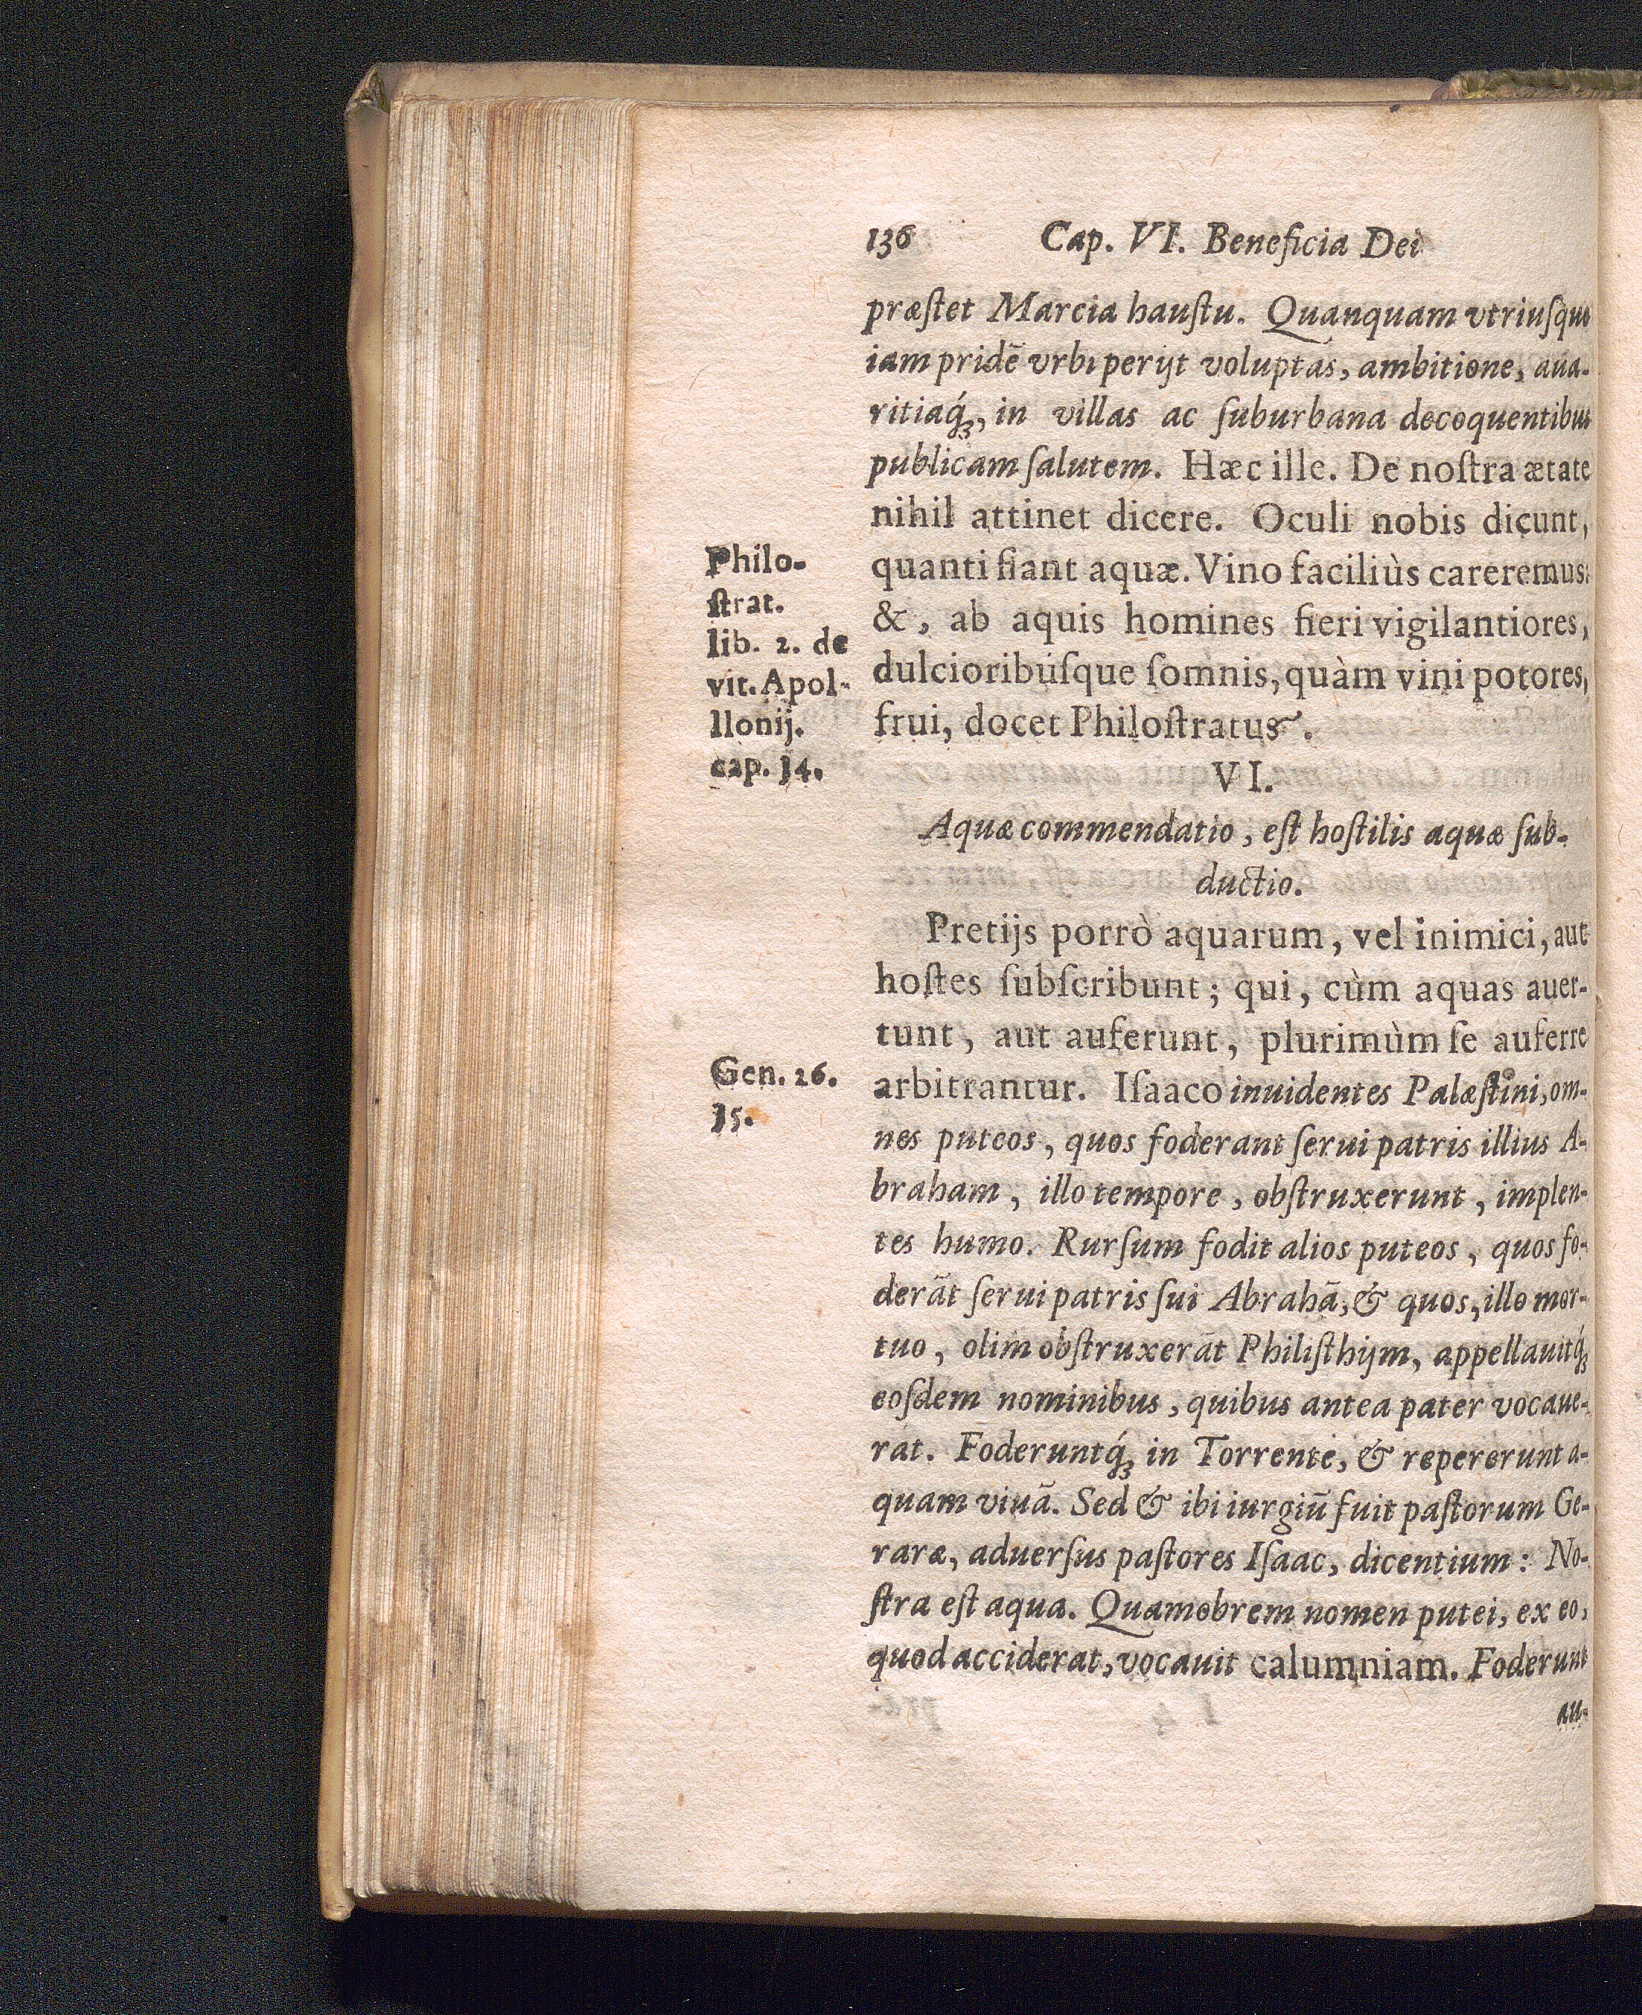 136 Cap. VI. Beneficia Dei
præſtet Marcia hauſtu. Quanquam vtriuſque
iam pridē vrbi perijt voluptas, ambitione, aua-
ritiaq́ꝫ, in villas ac ſuburbana decoquentibus
publicam ſalutem. Hæc ille. De noſtra ætate
nihil attinet dicere. Oculi nobis dicunt,
quanti fiant aquæ. Vino faciliùs careremus:
&, ab aquis homines fieri vigilantiores,
dulcioribuſque ſomnis, quàm vini potores,
frui, docet Philoſtratus.
Philo-
ſtrat.
lib. 2. de
vit. Apol-
llonij.
cap. 14.
VI.
Aquæ commendatio, eſt hoſtilis aquæ ſub-
ductio.
Pretijs porrò aquarum, vel inimici, aut
hoſtes ſubſcribunt; qui, cùm aquas auer-
tunt, aut auferunt, plurimùm ſe auferre
arbitrantur. Iſaaco inuidentes Palæſtini, om-
nes puteos, quos foderant ſerui patris illius A-
braham, illo tempore, obſtruxerunt, implen-
tes humo. Rurſum fodit alios puteos, quos fo-
derāt ſerui patris ſui Abrahā, & quos, illo mor-
tuo, olim obſtruxerāt Philiſthijm, appellauitq́ꝫ
eoſdem nominibus, quibus antea pater vocaue-
rat. Foderuntq́ꝫ in Torrente, & repererunt a-
quam viuā. Sed & ibi iurgiū fuit paſtorum Ge-
raræ, aduerſus paſtores Iſaac, dicentium: No-
ſtra eſt aqua. Quamobrem nomen putei, ex eo,
quod acciderat, vocauit calumniam. Foderunt
au-
Gen. 26.
15.